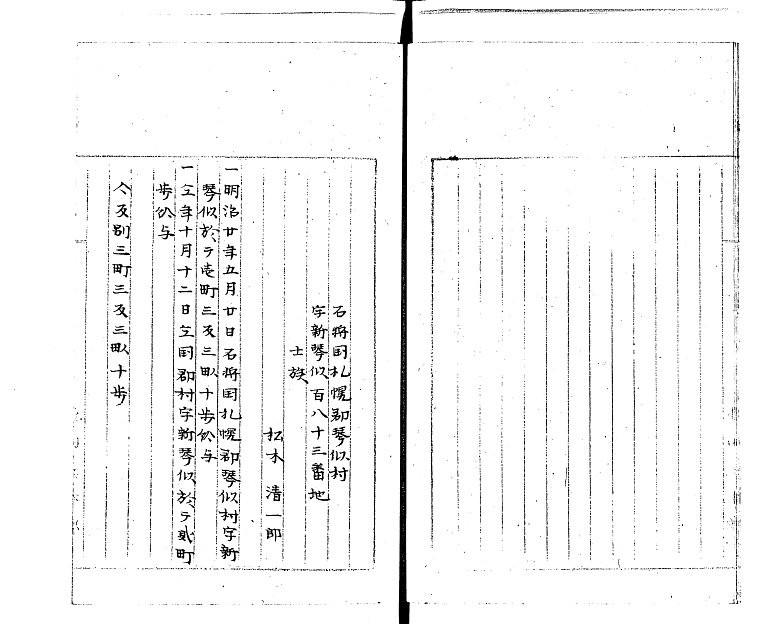 石狩国札幌郡琴似村
字新琴似百八十三番地
士族
松木清一郎
一明治廿年五月廿日石狩国札幌郡琴似村字新
琴似於テ壱町三反三畝十歩給与
一仝年十月十二日仝国郡村字新琴似於テ貮町
歩給与
合反別三町三反三畝十歩